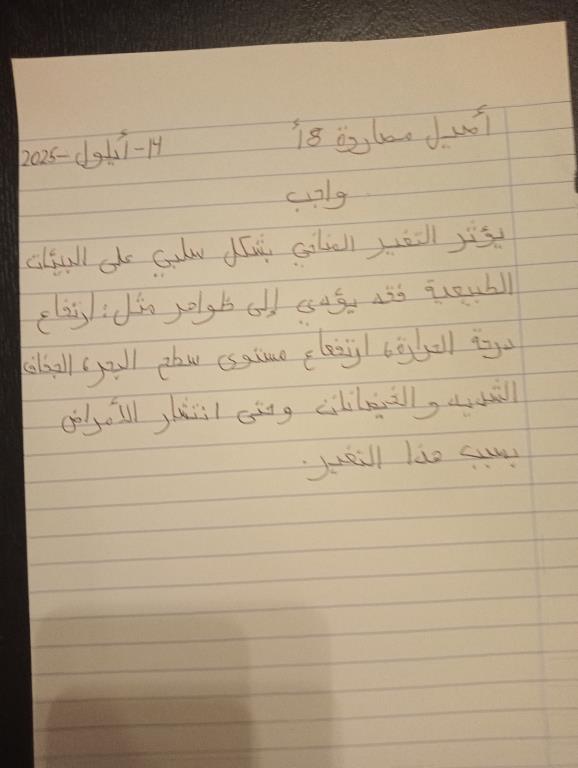 أصيل مصاروة 8أ
14-أيلول-2025
واجب
يؤثر التغير المناخي بشكل سلبي على البيئات
الطبيعية فقد يؤدي إلى ظواهر مثل: ارتفاع
درجة الحرارة، ارتفاع مستوى سطح البحر، الجفاف
الشديد والفيضانات وحتى انتشار الأمراض
بسبب هذا التغير.